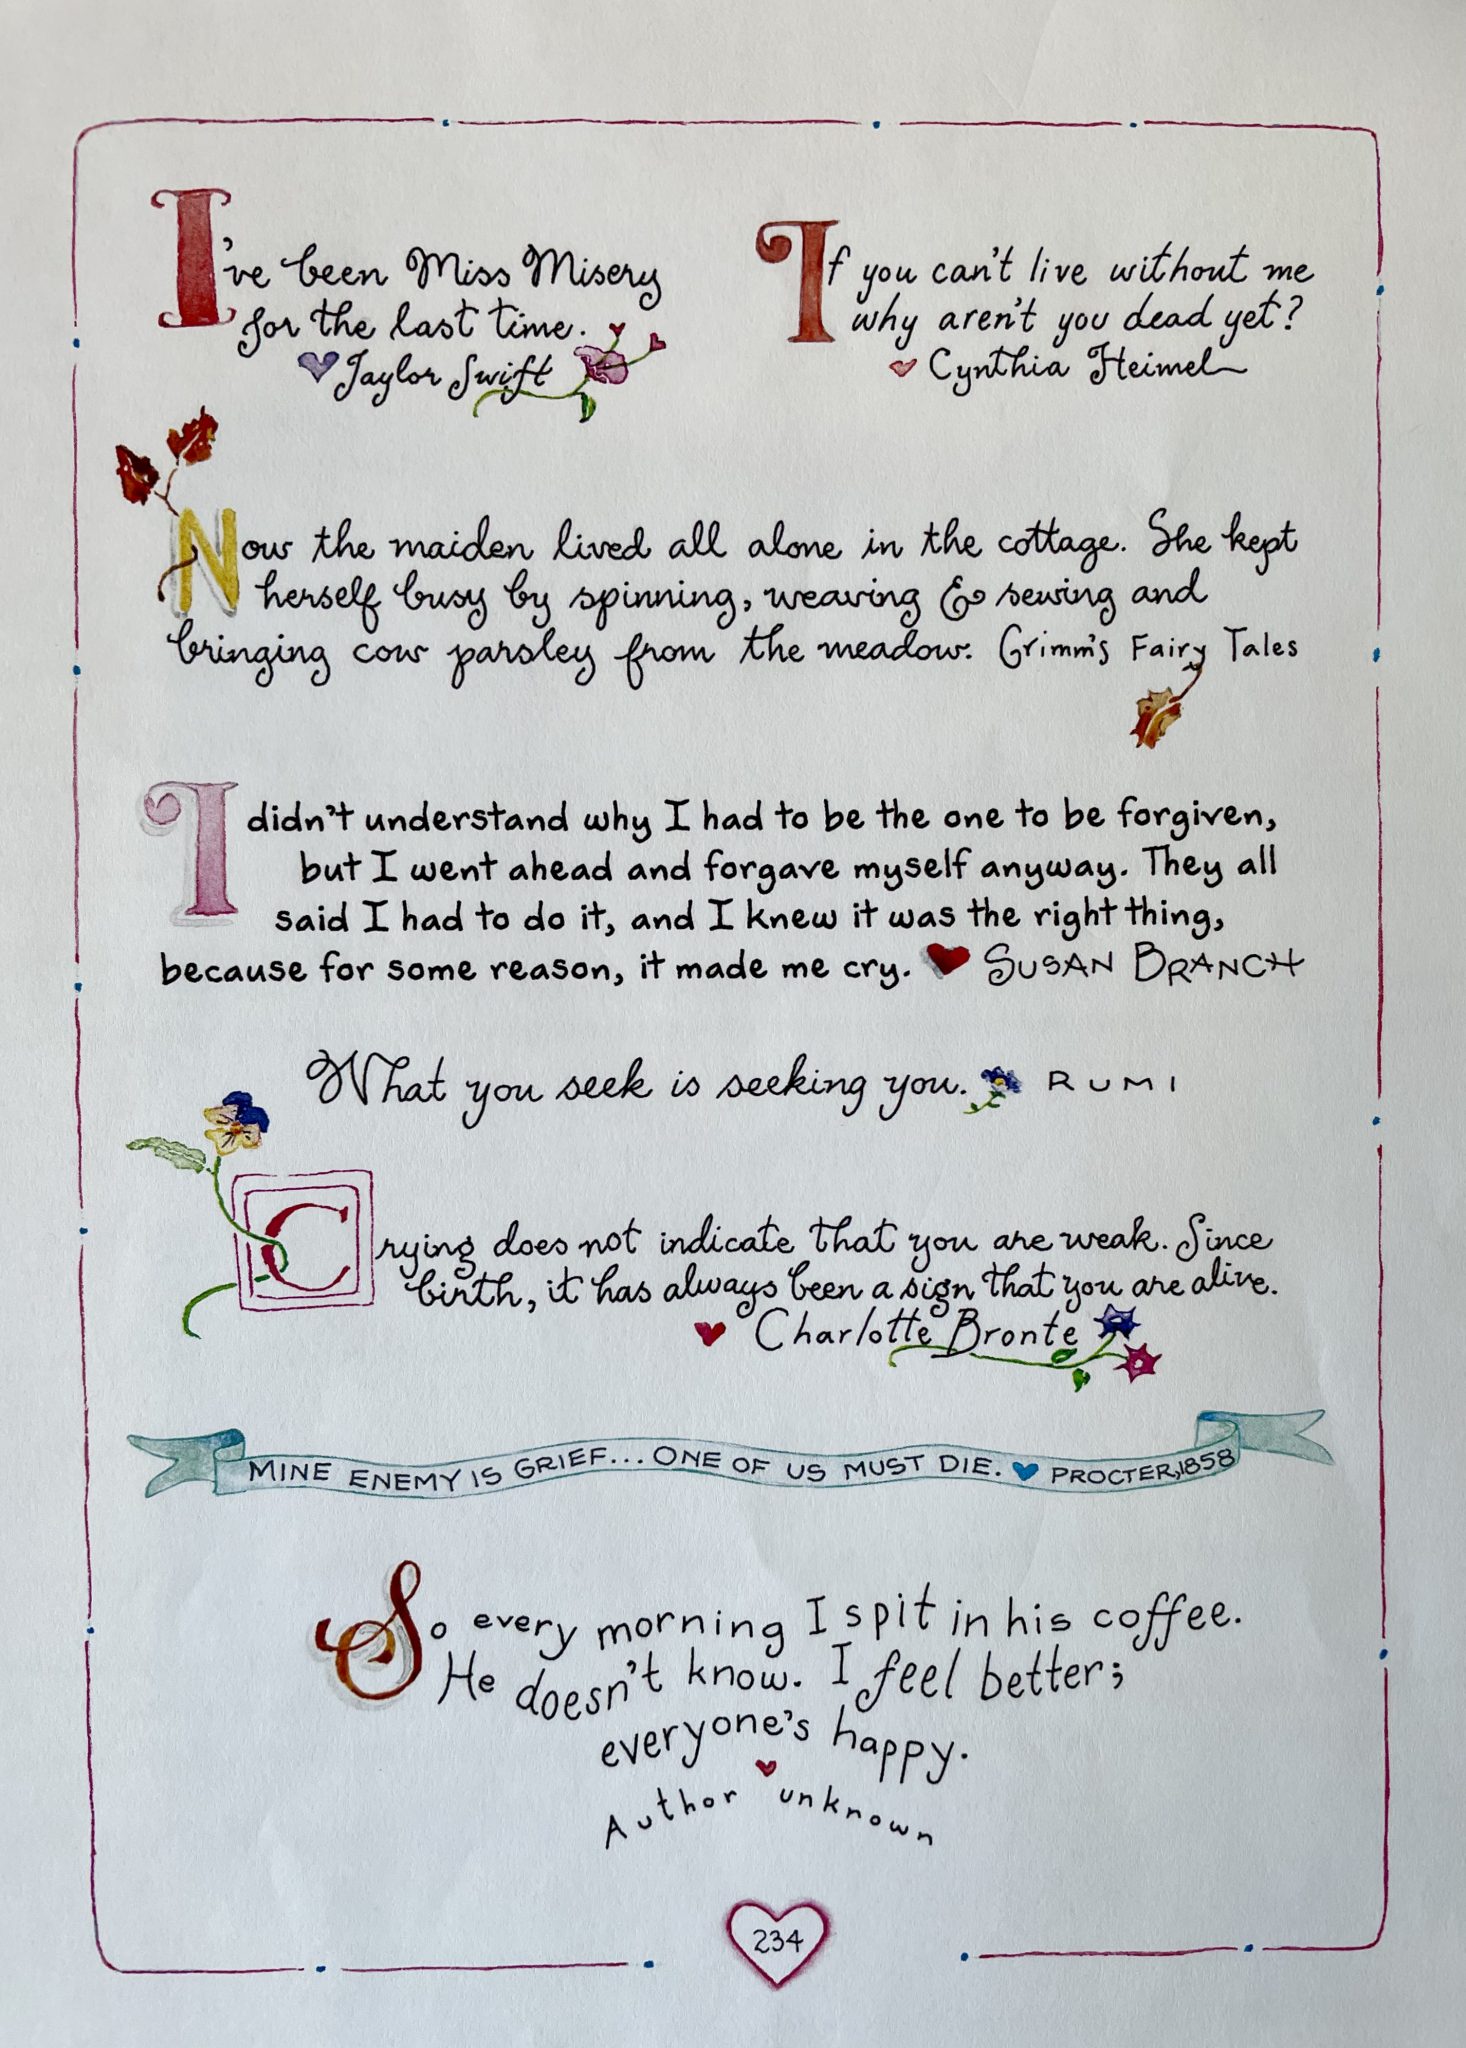 I've been Miss Misery
for the last time.
Taylor Swift
If you can't live without me
why aren't you dead yet?
Cynthia Heimel
Now the maiden lived all alone in the cottage. She kept
herself busy by spinning, weaving & sewing and
bringing cow parsley from the meadow. Grimm's Fairy Tales
I didn't understand why I had to be the one to be forgiven,
but I went ahead and forgave myself anyway. They all
said I had to do it, and I knew it was the right thing,
because for some reason, it made me cry. SUSAN BRANCH
What you seek is seeking you. RUMI
Crying does not indicate that you are weak. Since
birth, it has always been a sign that you are alive.
Charlotte Bronte
MINE ENEMY IS GRIEF... ONE OF US MUST DIE. PROCTER, 1858
So every morning I spit in his coffee.
He doesn't know. I feel better;
everyone's happy.
Author unknown
234